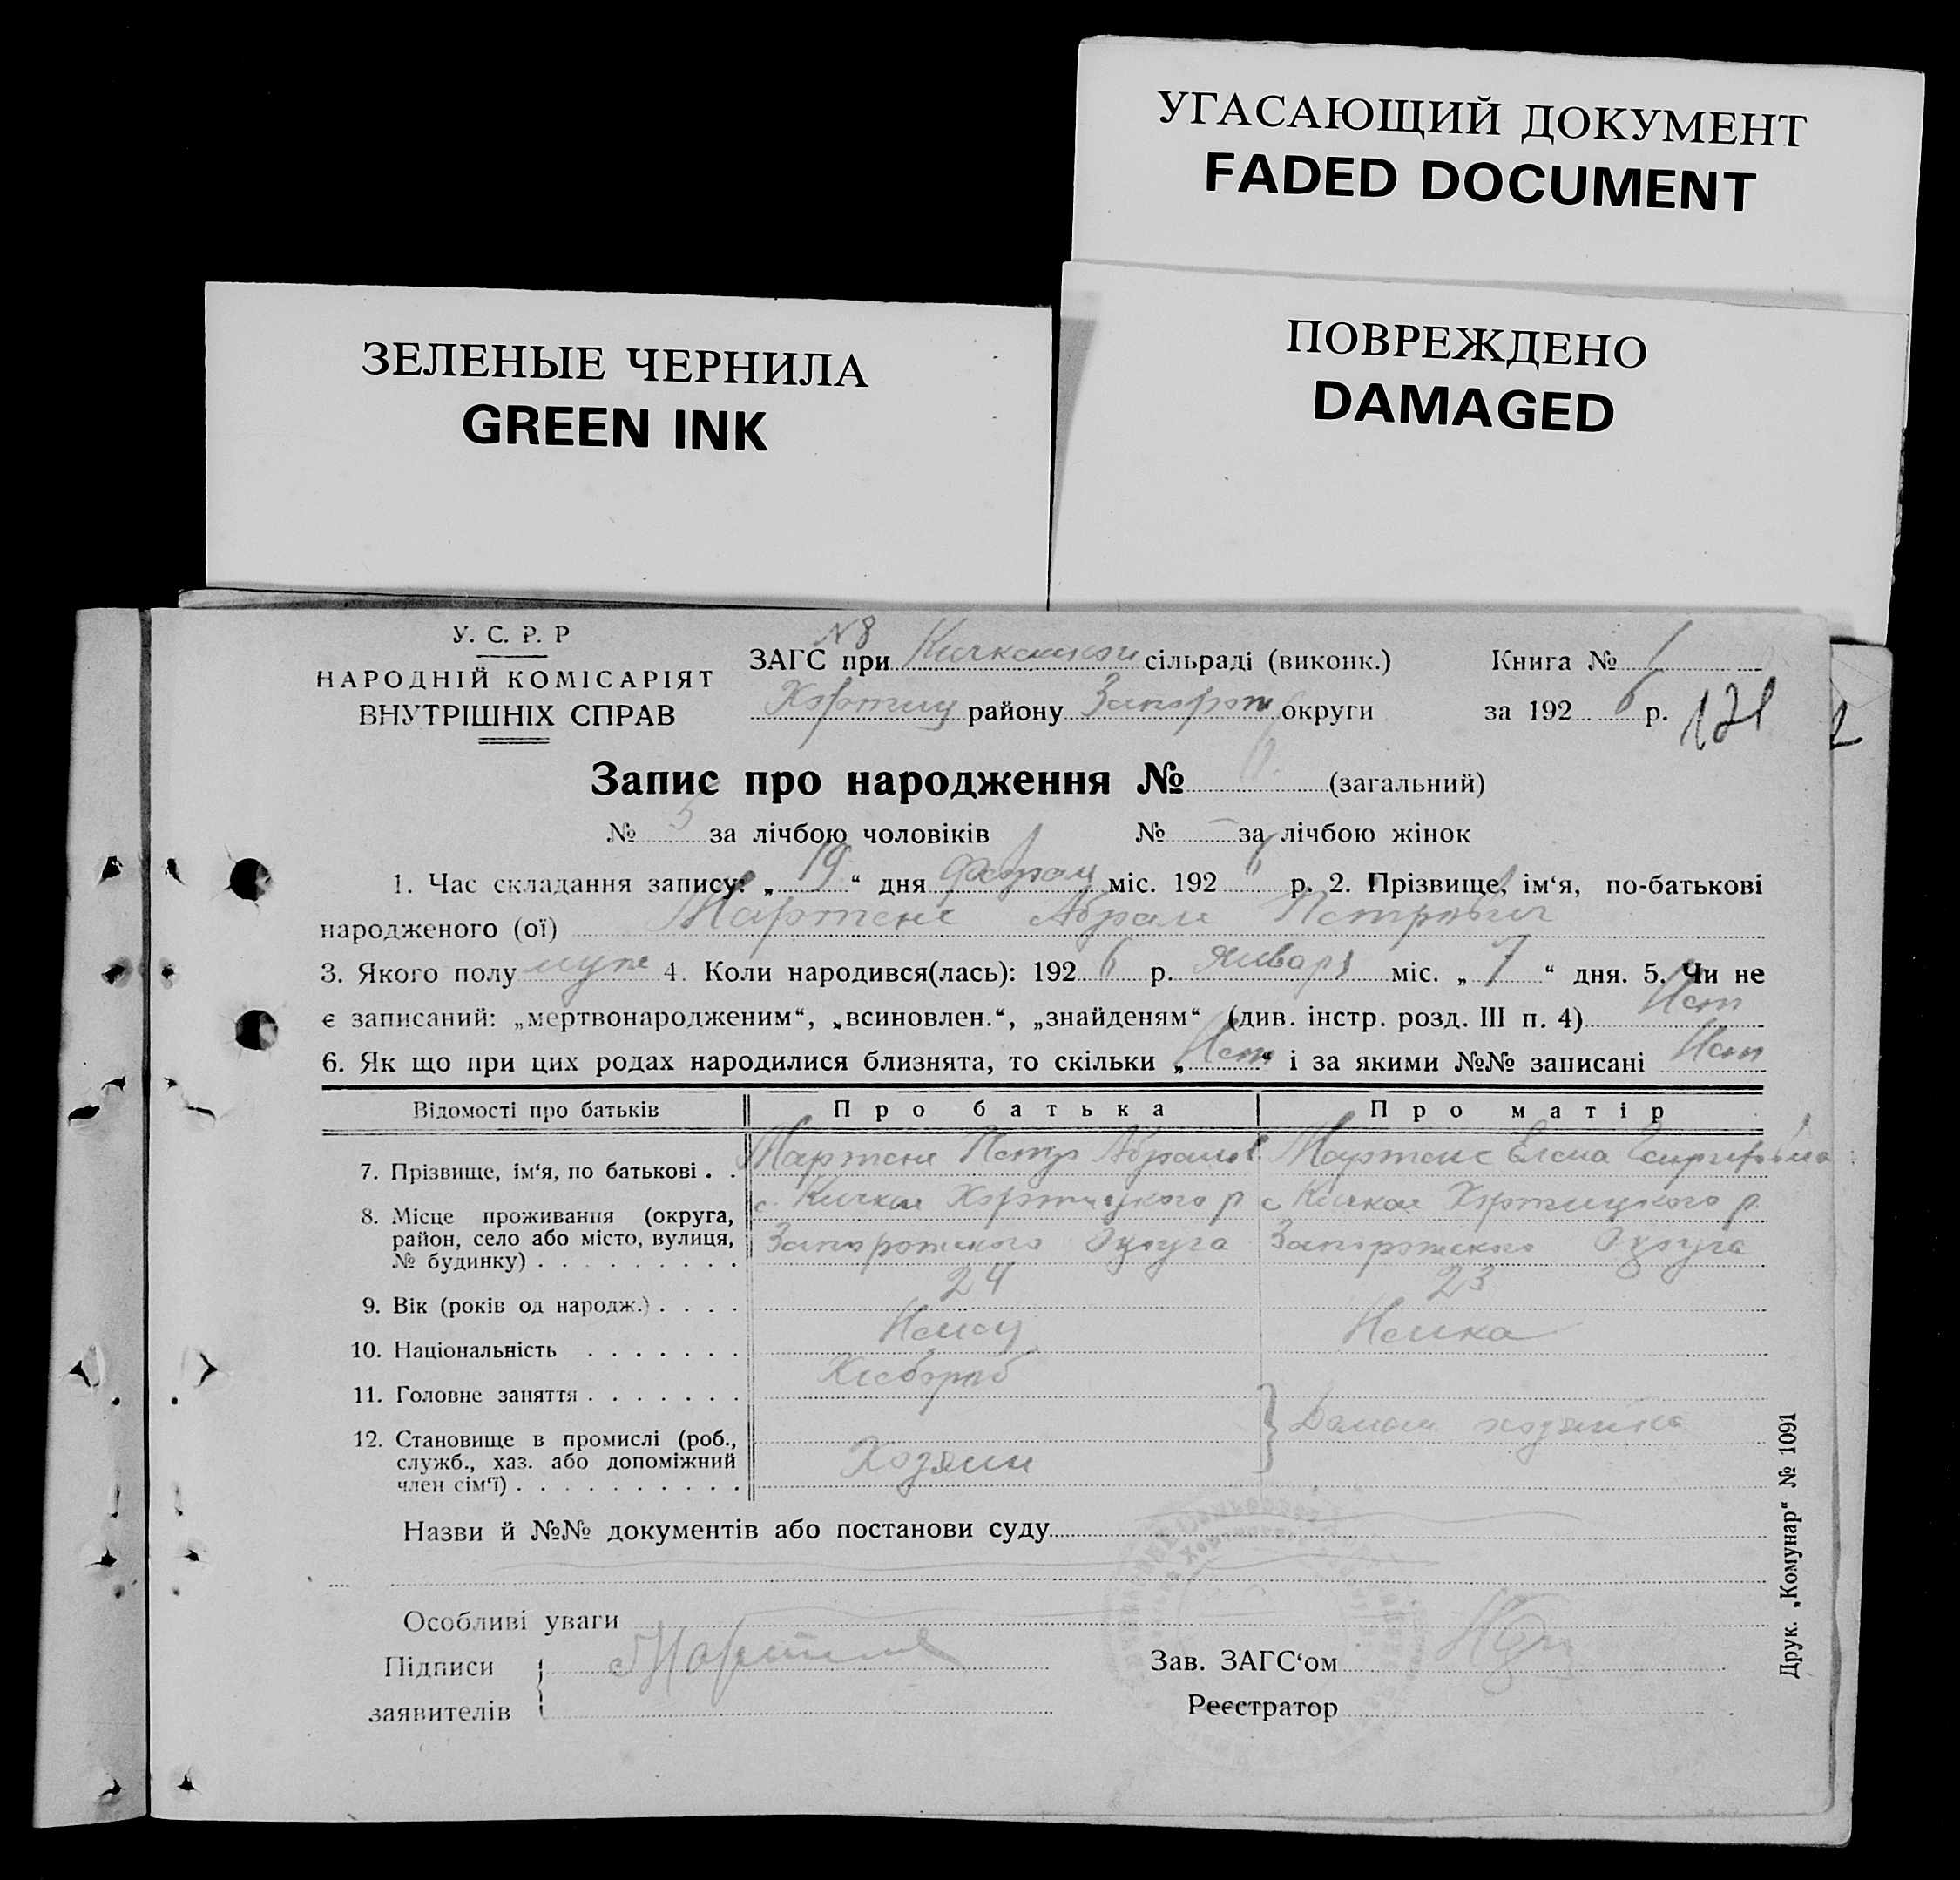 УГАСАЮЩИЙ ДОКУМЕНТ
FADED DOCUMENT
ЗЕЛЕНЫЕ ЧЕРНИЛА
GREEN INK
ПОВРЕЖДЕНО
DAMAGED
У. С. Р. Р
НАРОДНІЙ КОМІСАРІЯТ
ВНУТРІШНІХ СПРАВ
N8
ЗАГС при Кичкаскои сільраді (виконк.) Книга № 1
Хортиц району Запорож округи за 192 6 р. 121
Запис про народження № 6. (загальний)
№ 5 за лічбою чоловіків № — за лічбою жінок
1. Час складання запису: „ 19 “ дня феврал міс. 192 6 р. 2. Прізвище, ім‘я, по-батькові
народженого (ої) Мартенс Абрам Петрович
3. Якого полу муж 4. Коли народився(лась): 192 6 р. январ міс. „ 7 “ дня. 5. Чи не
є записаний: „мертвонародженим“, „всиновлен.“, „знайденям“ (див. інстр. розд. III п. 4) Нет
6. Як що при цих родах народилися близнята, то скільки „ Нет “ і за якими №№ записані Нет
Відомості про батьків Про батька Про матір
7. Прізвище, ім‘я, по батькові . . Мартенс Петр Абрамов Мартенс Елена Генриховна
8. Місце проживання (округа, с. Кичкас Хортицкого р с Кичкас Хортицкого р.
район, село або місто, вулиця, Запорожского Округа Запорожского Округа
№ будинку) . . . . . . . . .
9. Вік (років од народж.) . . . . 24 23
10. Національність . . . . . . . Немец Немка
11. Головне заняття . . . . . . . Хлебороб
12. Становище в промислі (роб., Домаш хозяйка
служб., хаз. або допоміжний Хозяин
член сім‘ї) . . . . . . . . . .
Назви й №№ документів або постанови суду
Особливі уваги
Підписи
заявителів
Зав. ЗАГС‘ом
Реєстратор
Друк. „Комунар“ № 1091